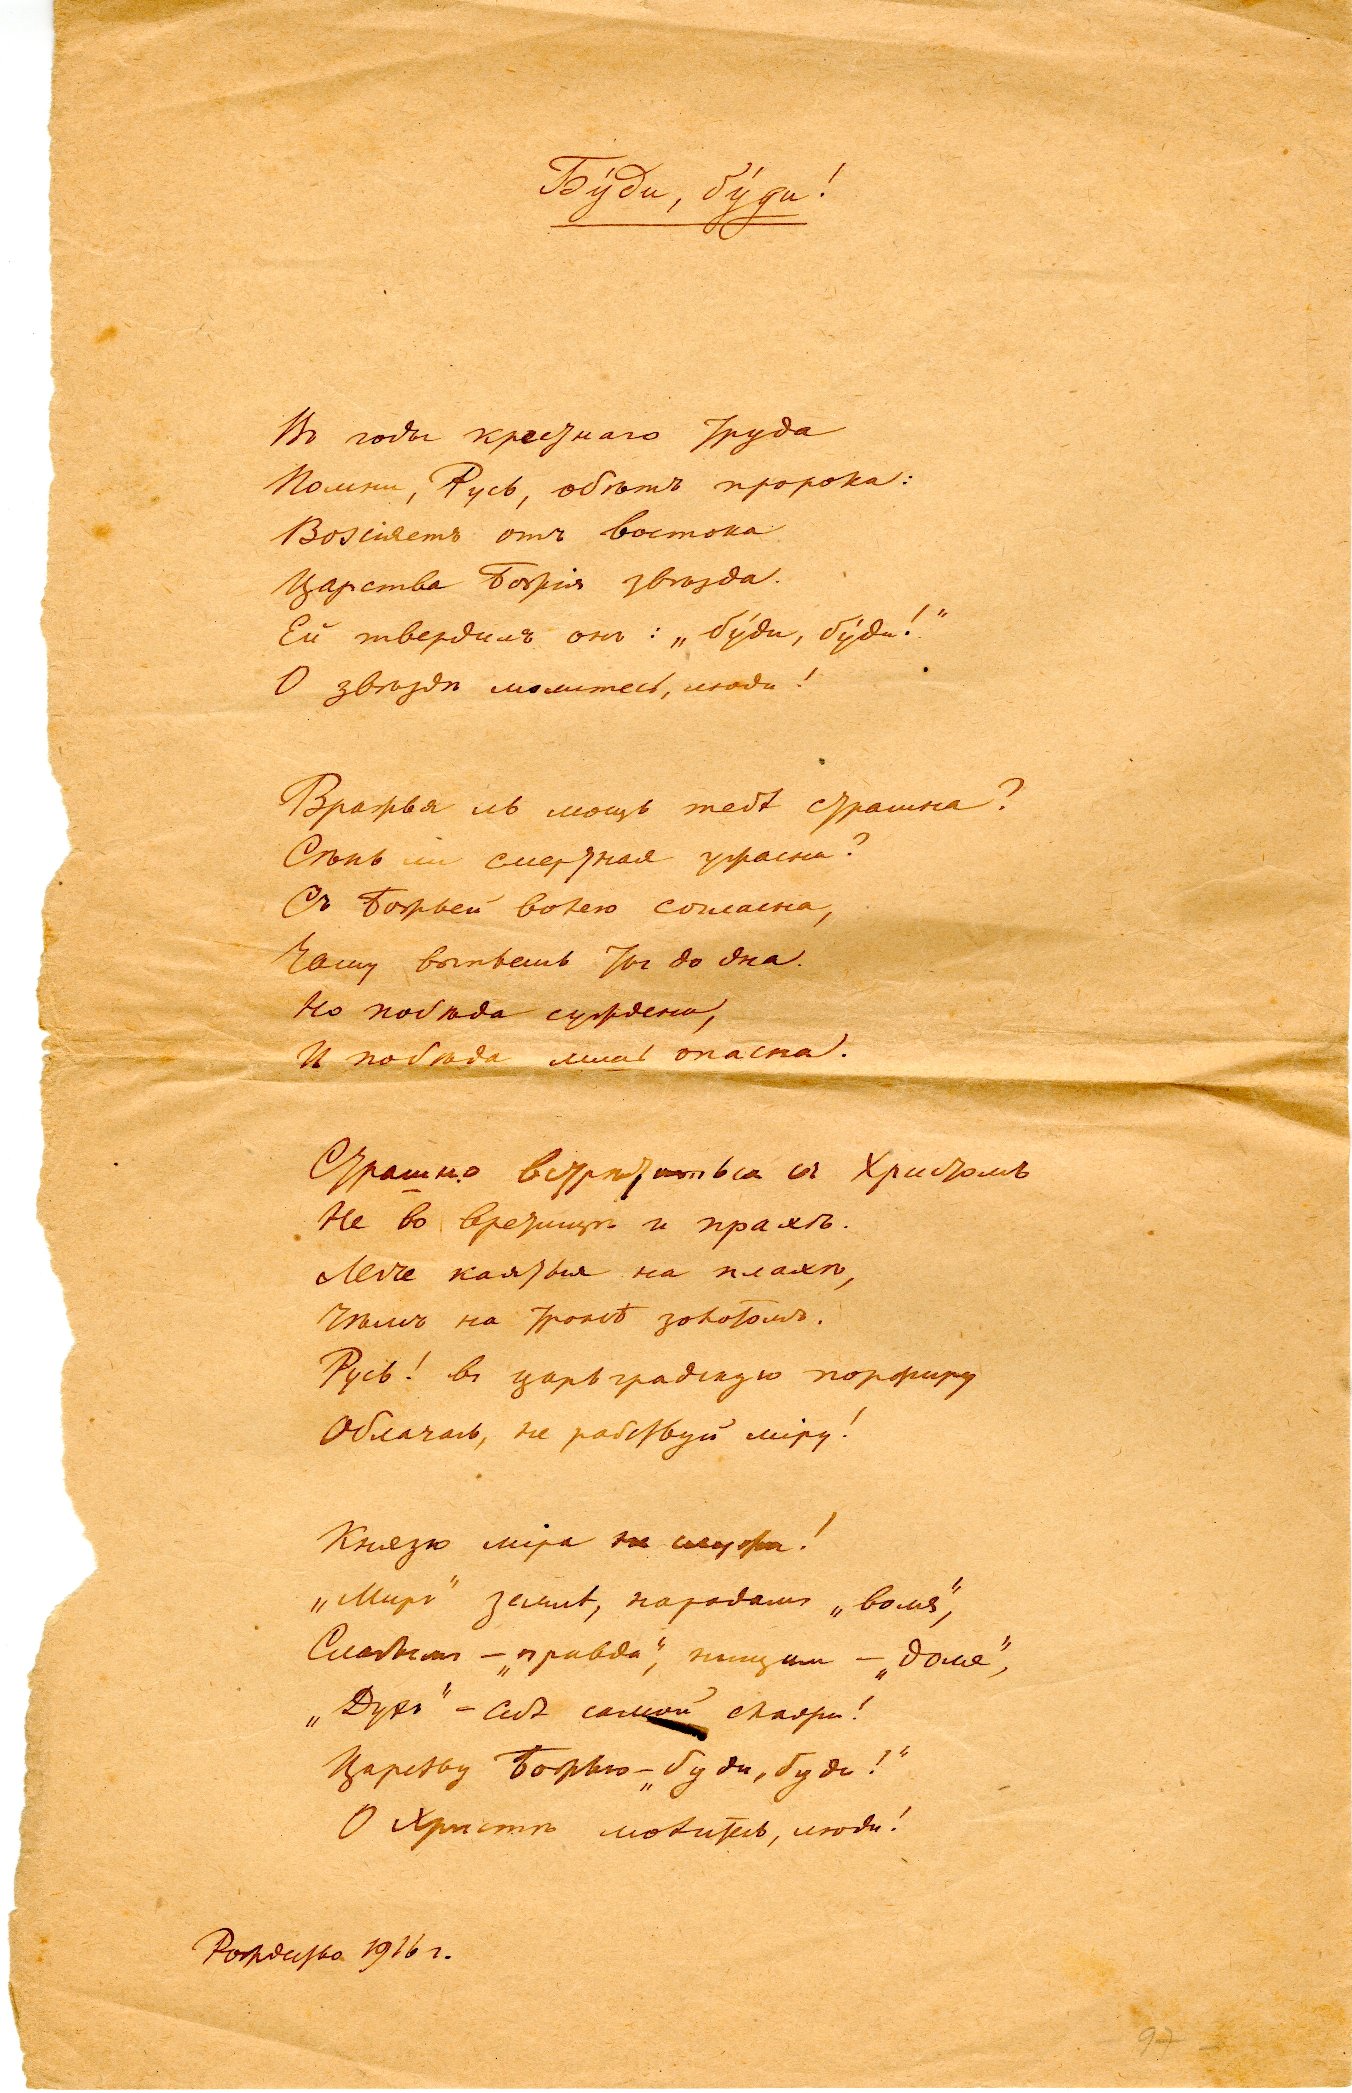 Бу́ди, бу́ди!
Въ годы крестнаго труда
Помни, Русь, обѣтъ пророка:
Возсіяетъ отъ востока
Царства Божія звѣзда.
Ей твердилъ онъ: „бу́ди, бу́ди!"
О звѣздѣ молитесь, люди!
Вражья ль мощь тебѣ страшна?
Сѣнь ли смертная ужасна?
Съ Божьей волею согласна,
Чашу выпьешь ты до дна.
Но побѣда суждена,
И побѣда лишь опасна.
Страшно встрѣтиться съ Христомъ
Не во вретищѣ и прахѣ.
Легче каяться на плахѣ,
Чѣмъ на тронѣ золотомъ.
Русь! въ царьградскую порфиру
Облачась, не рабствуй міру!
Князю міра не служи!
„Миръ" землѣ, народамъ „воля",
Слабымъ – „правда", нищим – „доля",
„Духъ" – себѣ самой скажи!
Царству Божью – „буди, буди!"
О Христѣ молитесь, люди!
Рождество 1916 г.
97